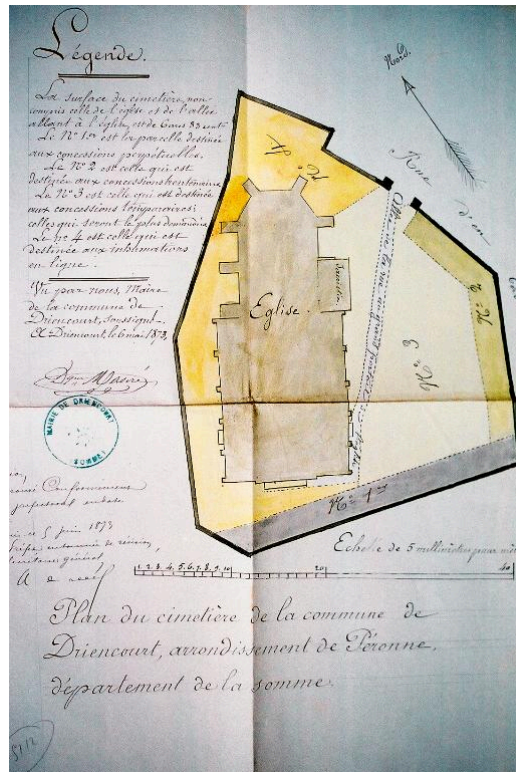 Légende.
La surface du cimetière, non
compris celle de l'église et de l'allée
allant à l'église, est de 6 ares 83 cent.
Le Nº 1er est la parcelle destinée
aux concessions perpétuelles.
Le Nº 2 est celle qui est
destinée aux concessions trentenaires
Le Nº 3 est celle qui est destinée
aux concessions temporaires;
celles qui seront le plus demandées
Le nº 4 est celle qui est
destinée aux inhumations
en ligne.
Vu par nous, Maire
de la commune de
Driencourt, soussigné.
A Driencourt, le 6 mai 1873,
MAIRIE DE DRIENCOURT
(SOMME)
Conformément
5 juin 1873
général
Nord.
Rue d'en
Nº 4
Eglise.
Sacristie
Nº 2
Nº 3
Nº 1er
Echelle de 5 millimètres pour mètre
1 2 3 4 5 6 7 8 9 10 20 40
Plan du cimetière de la commune de
Driencourt, arrondissement de Péronne,
département de la somme.